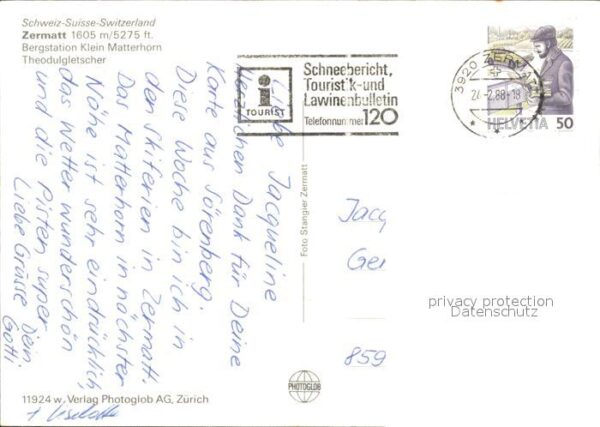 Schweiz-Suisse-Switzerland
Zermatt 1605 m/5275 ft.
Bergstation Klein Matterhorn
Theodulgletscher
Liebe Jacqueline
Herzlichen Dank für Deine
Karte aus Sörenberg.
Diese Woche bin ich in
den Skiferien in Zermatt.
Das Matterhorn in nächster
Nähe ist sehr eindrücklich,
das Wetter wunderschön
und die Pisten super
Liebe Grüsse Dein
Gotti
11924 w. Verlag Photoglob AG, Zürich
Foto Stangier Zermatt
PHOTOGLOB
i
TOURIST
Schneebericht,
Touristik-und
Lawinenbulletin
Telefonnummer 120
3920 ZERMATT
24-2.88-18
HELVETIA 50
Jacq
Ger
859
privacy protection
Datenschutz